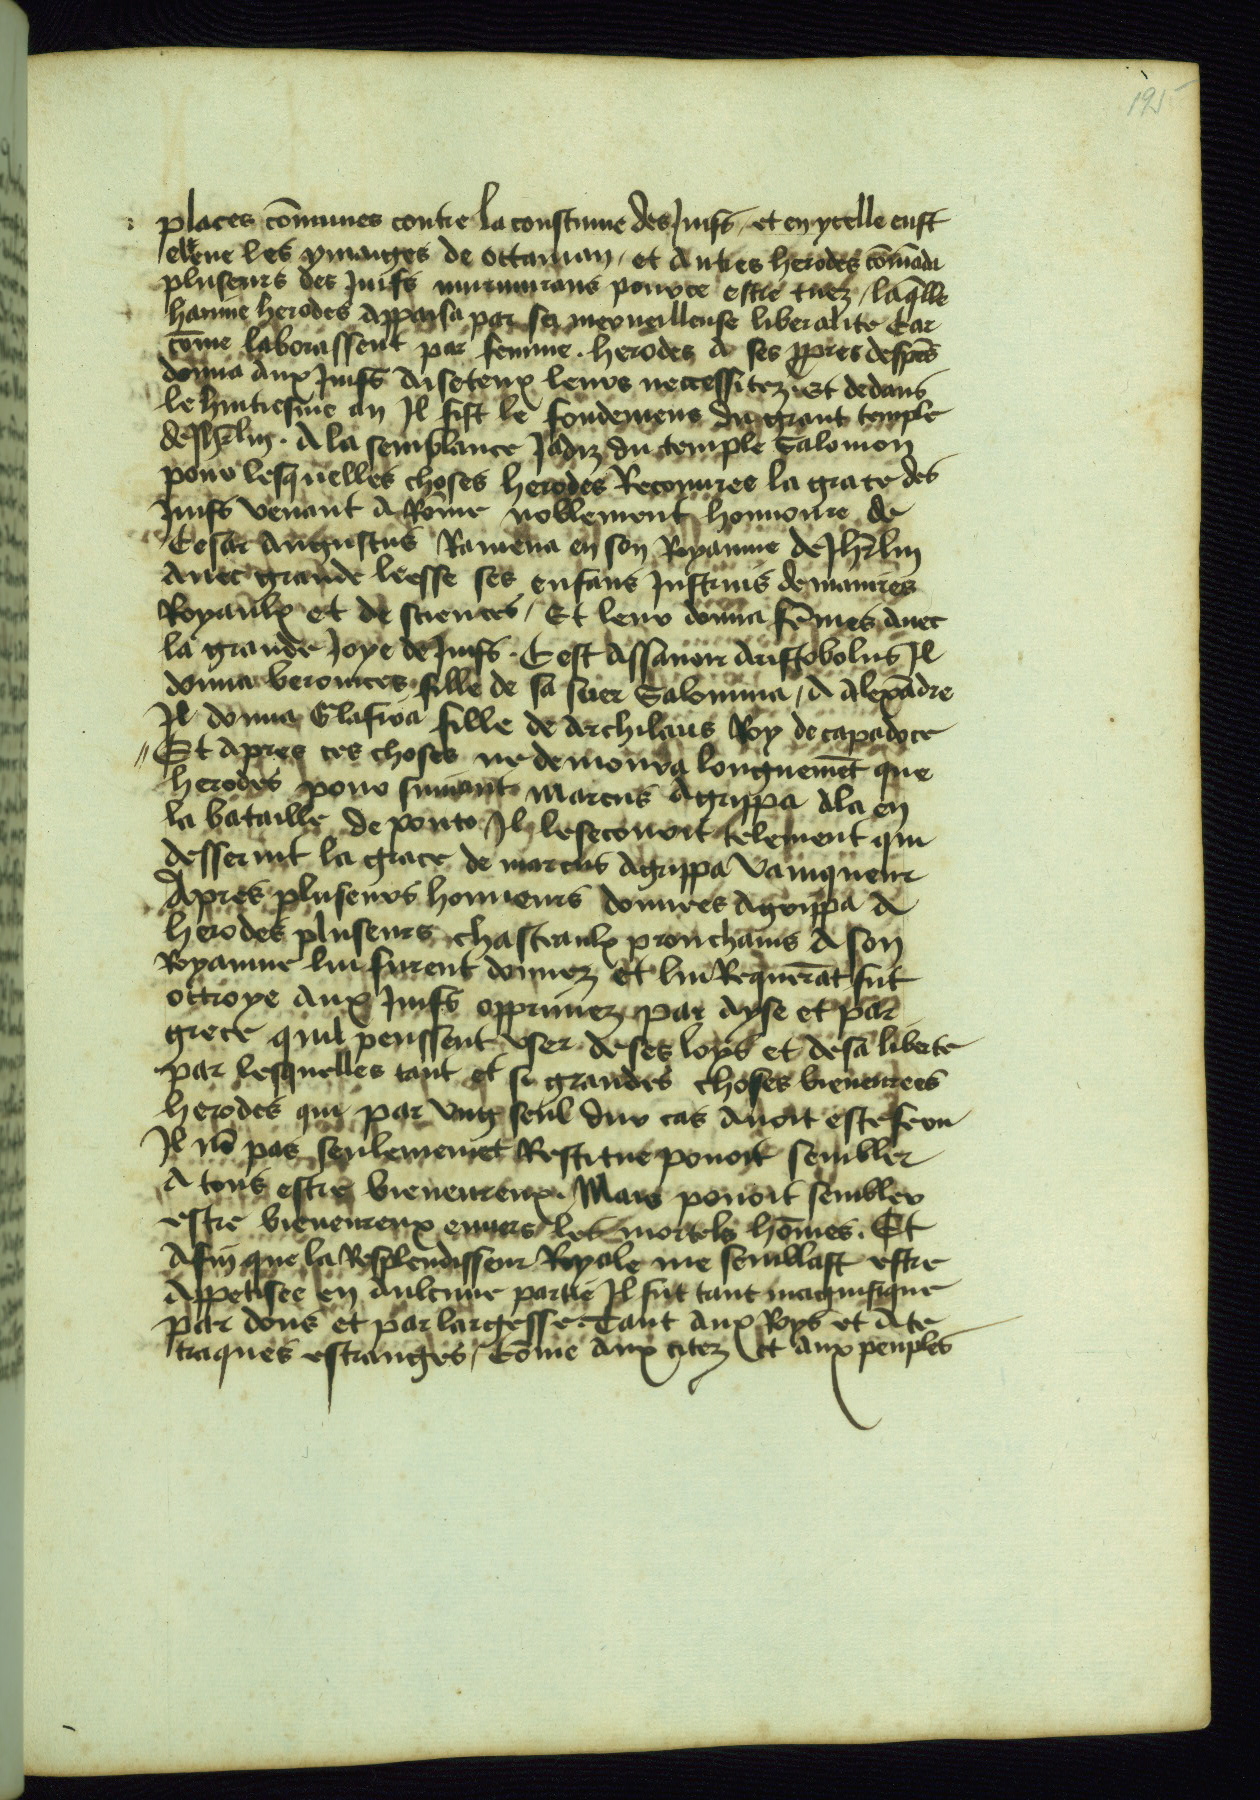 195
places cōmunes contre la constume des Juifs / et en ycelle eust
elleue les ymaiges de ottauian / et autres herodes cōmāda
pluseurs des Juifs murmurans pour ce estre tuez / laq̄lle
hayne herodes appaisa par sa merueilleuse liberalite Car
cōme laborassent par femine . herodes a ses ppres despēs
donna aux Juifs diseteux leurs neccessitez . Et dedans
le huitiesme an Il fist le fondemens du grant temple
de Jhrlm . A la semblance Jadiz du temple Salomon
pour lesquelles choses herodes Recouuree la grace des
Juifs venant a Rōme noblement honnoure de
Cesar Augustus Ramena en son Royaume de Jhrlm
auec grande leesse ses enfans Instruis de manieres
Royaulx et de sciences / Et leur donna fēmes auec
la grande Joye de Juifs . Cest assauoir aristobolus Il
donna beronices fille de sa seur Salomina / A alexādre
Il donna Glafira fille de Archilaus Roy de capadoce
// Et apres ces choses ne demoura longuemēt que
herodes pour suiuant Marcus Agrippa ala en
la bataille de ponto / Il le secourit telement qui
desseruit la grace de marcus Agrippa vainqueur
Apres pluseurs honneurs donnees Agrippa A
herodes pluseurs chasteaulx prouchains A son
Royaume lui furent donnez et lui Requerāt fut
ottroye aux Juifs opprimez par Ayse et par
grece quil peussent vser de ses loys et de sa liberte
par lesquelles tant et si grandes choses bieneurees
herodes qui par vng seul dur cas auoit este feru
Il nō pas seulemēnt Restitue pouoit sembler
A tous estre bieneureux . Mais pouoit sembler
estre bieneureux enuers les mortels hōmes . Et
Afin que la Resplendisseur Royale ne semblast estre
Appetisee en aulcune partie Il fut tant magnifique
par dons et par largesse Tant aux Roys et A te
traques estranges / Cōme aux citez et aux peuples